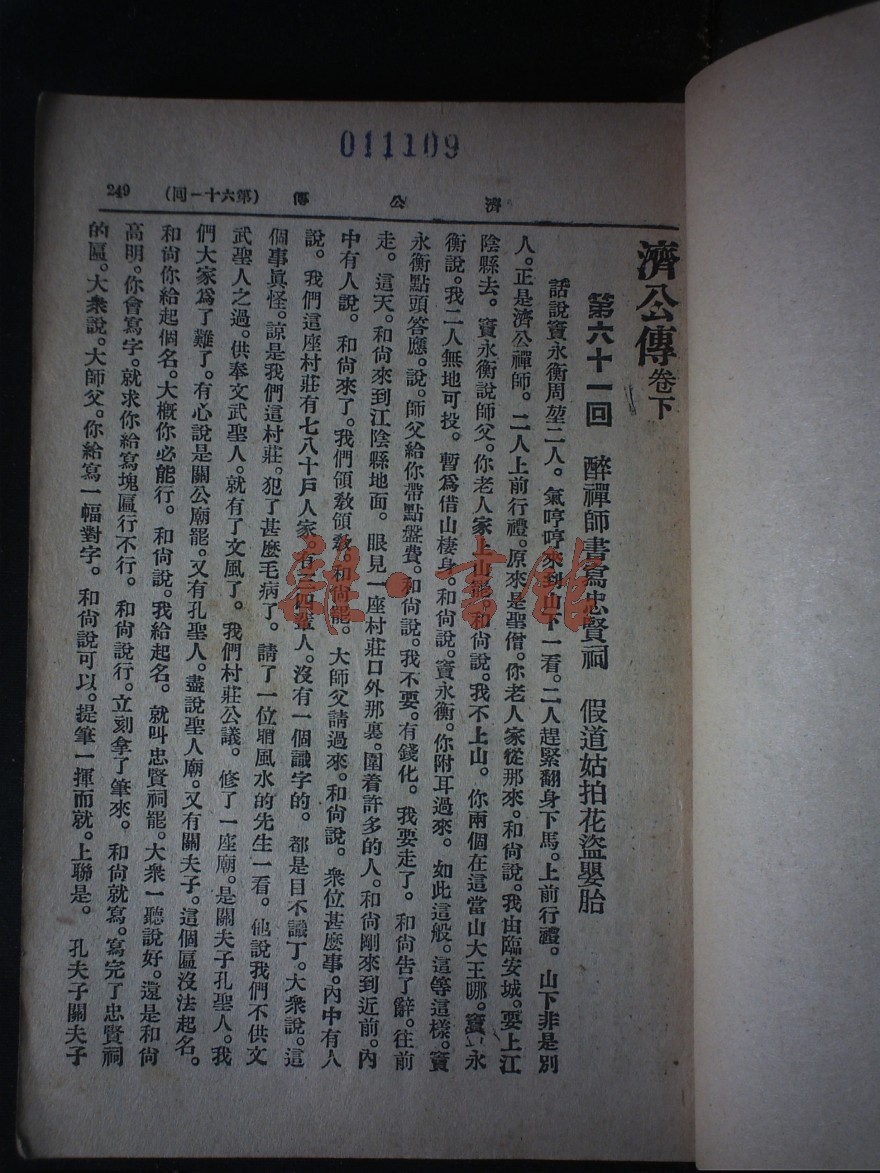 011109
濟公傳 (第六十一回) 249
濟公傳卷下
第六十一回 醉禪師書寫忠賢祠 假道姑拍花盜嬰胎
話說竇永衡周堃二人。氣哼哼來到山下一看。二人趕緊翻身下馬。上前行禮。山下非是別
人。正是濟公禪師。二人上前行禮。原來是聖僧。你老人家從那來。和尙說。我由臨安城。要上江
陰縣去。竇永衡說師父。你老人家上山罷。和尙說。我不上山。你兩個在這當山大王哪。竇永
衡說。我二人無地可投。暫爲借山棲身。和尙說。竇永衡。你附耳過來。如此這般。這等這樣。竇
永衡點頭答應。說。師父給你帶點盤費。和尙說。我不要。有錢化。我要走了。和尙告了辭。往前
走。這天。和尙來到江陰縣地面。眼見一座村莊口外那裏。圍着許多的人。和尙剛來到近前。內
中有人說。和尙來了。我們領敎領敎。和尙罷。大師父請過來。和尙說。衆位甚麽事。內中有人
說。我們這座村莊有七八十戶人家。有三四輩人。沒有一個識字的。都是目不識丁。大衆說。這
個事眞怪。諒是我們這村莊。犯了甚麽毛病了。請了一位瞧風水的先生一看。他說我們不供文
武聖人之過。供奉文武聖人。就有了文風了。我們村莊公議。修了一座廟。是關夫子孔聖人。我
們大家爲了難了。有心說是關公廟罷。又有孔聖人。盡說聖人廟。又有關夫子。這個匾沒法起名。
和尙你給起個名。大槪你必能行。和尙說。我給起名。就叫忠賢祠罷。大衆一聽說好。還是和尙
高明。你會寫字。就求你給寫塊匾行不行。和尙說行。立刻拿了筆來。和尙就寫。寫完了忠賢祠
的匾。大衆說。大師父。你給寫一幅對字。和尙說可以。提筆一揮而就。上聯是。孔夫子關夫子
雜·書館